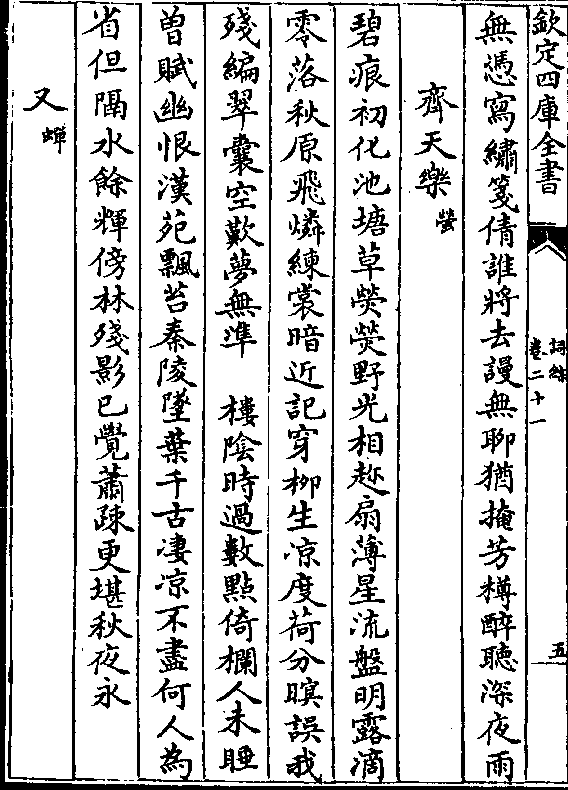 欽定四庫全書
詞綜
卷二十一
五
無憑寫繡箋倩誰將去謾無聊猶掩芳樽醉聽深夜雨
齊天樂螢
碧痕初化池塘草熒熒野光相趂扇薄星流盤明露滴
零落秋原飛燐練裳暗近記穿柳生凉度荷分暝誤我
殘編翠囊空歎夢無凖　樓陰時過數點倚欄人未睡
曽賦幽恨漢苑飄苔秦陵墜葉千古凄凉不盡何人為
省但隔水餘輝傍林殘影已覺蕭疎更堪秋夜永
又蟬